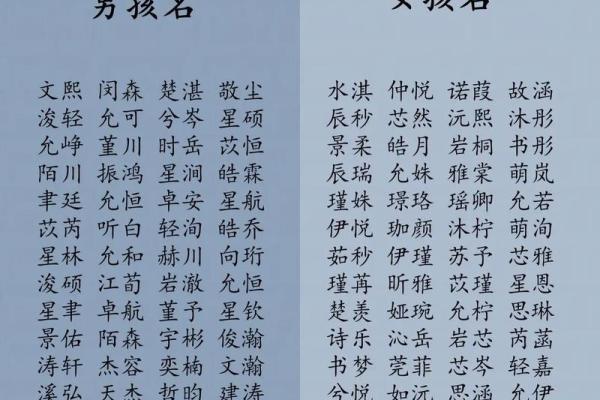 男孩名
文熙 闵森 楚湛 敬尘
浚轻 允可 兮岑 星硕
允峥 堇川 时岳 苡恒
陌川 振鸿 星涧 皓霖
聿廷 允恒 卓安 星航
苡芮 听白 轻洵 皓乔
星林 允和 赫川 向珩
浚硕 江荀 岩澈 允恒
星聿 卓航 堇予 星钦
景佑 陌森 宇彬 俊瀚
涛轩 杰容 奕楠 文瀚
溪弘 天杰 哲昀 建涛
女孩名
水淇 仲悦 诺葭 故涵
辰秒 芯然 沅熙 沐彤
景柔 皓月 岩桐 书彤
辰瑞 允姝 雅棠 萌岚
瑾姝 璟珞 瑶卿 允若
伊悦 珈颜 沐柠 萌洵
茹秒 伊瑾 苏予 芯雅
瑾苒 昕雅 苡瑾 星恩
楚羡 娅琬 允柠 思琳
诗乐 沁岳 岩芯 芮菡
书梦 莞菲 芯岑 轻嘉
兮悦 如沅 思涵 允伊